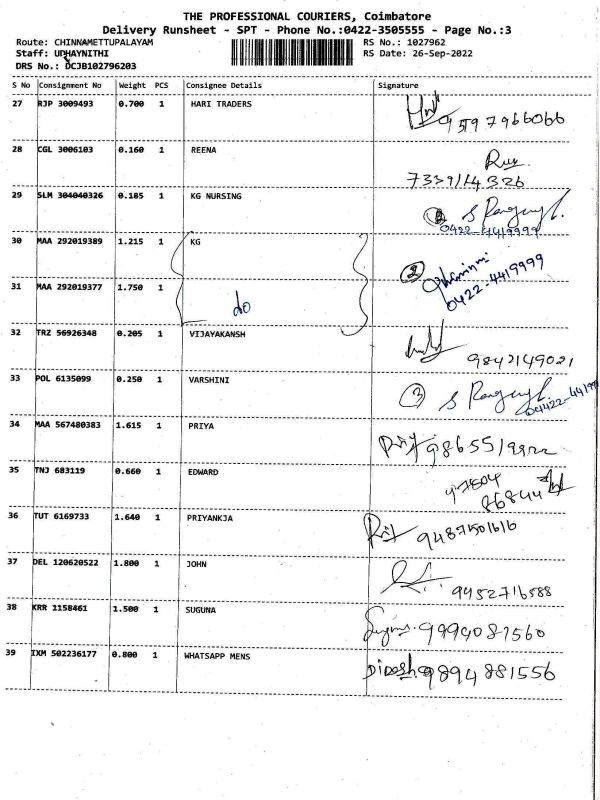 THE PROFESSIONAL COURIERS, Coimbatore
Delivery Runsheet - SPT - Phone No.:0422-3505555 - Page No.:3
Route: CHINNAMETTUPALAYAM RS No.: 1027962
Staff: UDHAYNITHI RS Date: 26-Sep-2022
DRS No.: DCJB102796203
S No Consignment No Weight PCS Consignee Details Signature
27 RJP 3009493 0.700 1 HARI TRADERS 9597966066
28 CGL 3006103 0.160 1 REENA 7339114326
29 SLM 304040326 0.185 1 KG NURSING 0422-4419999
30 MAA 292019389 1.215 1 KG 2
31 MAA 292019377 1.750 1 do 0422-4419999
32 TRZ 56926348 0.205 1 VIJAYAKANSH 9842149021
33 POL 6135099 0.250 1 VARSHINI 3
34 MAA 567480383 1.615 1 PRIYA
35 TNJ 683119 0.660 1 EDWARD 97504 86844
36 TUT 6169733 1.640 1 PRIYANKJA 9487501616
37 DEL 120620522 1.800 1 JOHN 9452716588
38 KRR 1158461 1.500 1 SUGUNA 9994081560
39 IXM 502236177 0.800 1 WHATSAPP MENS Dinesh 9894881556